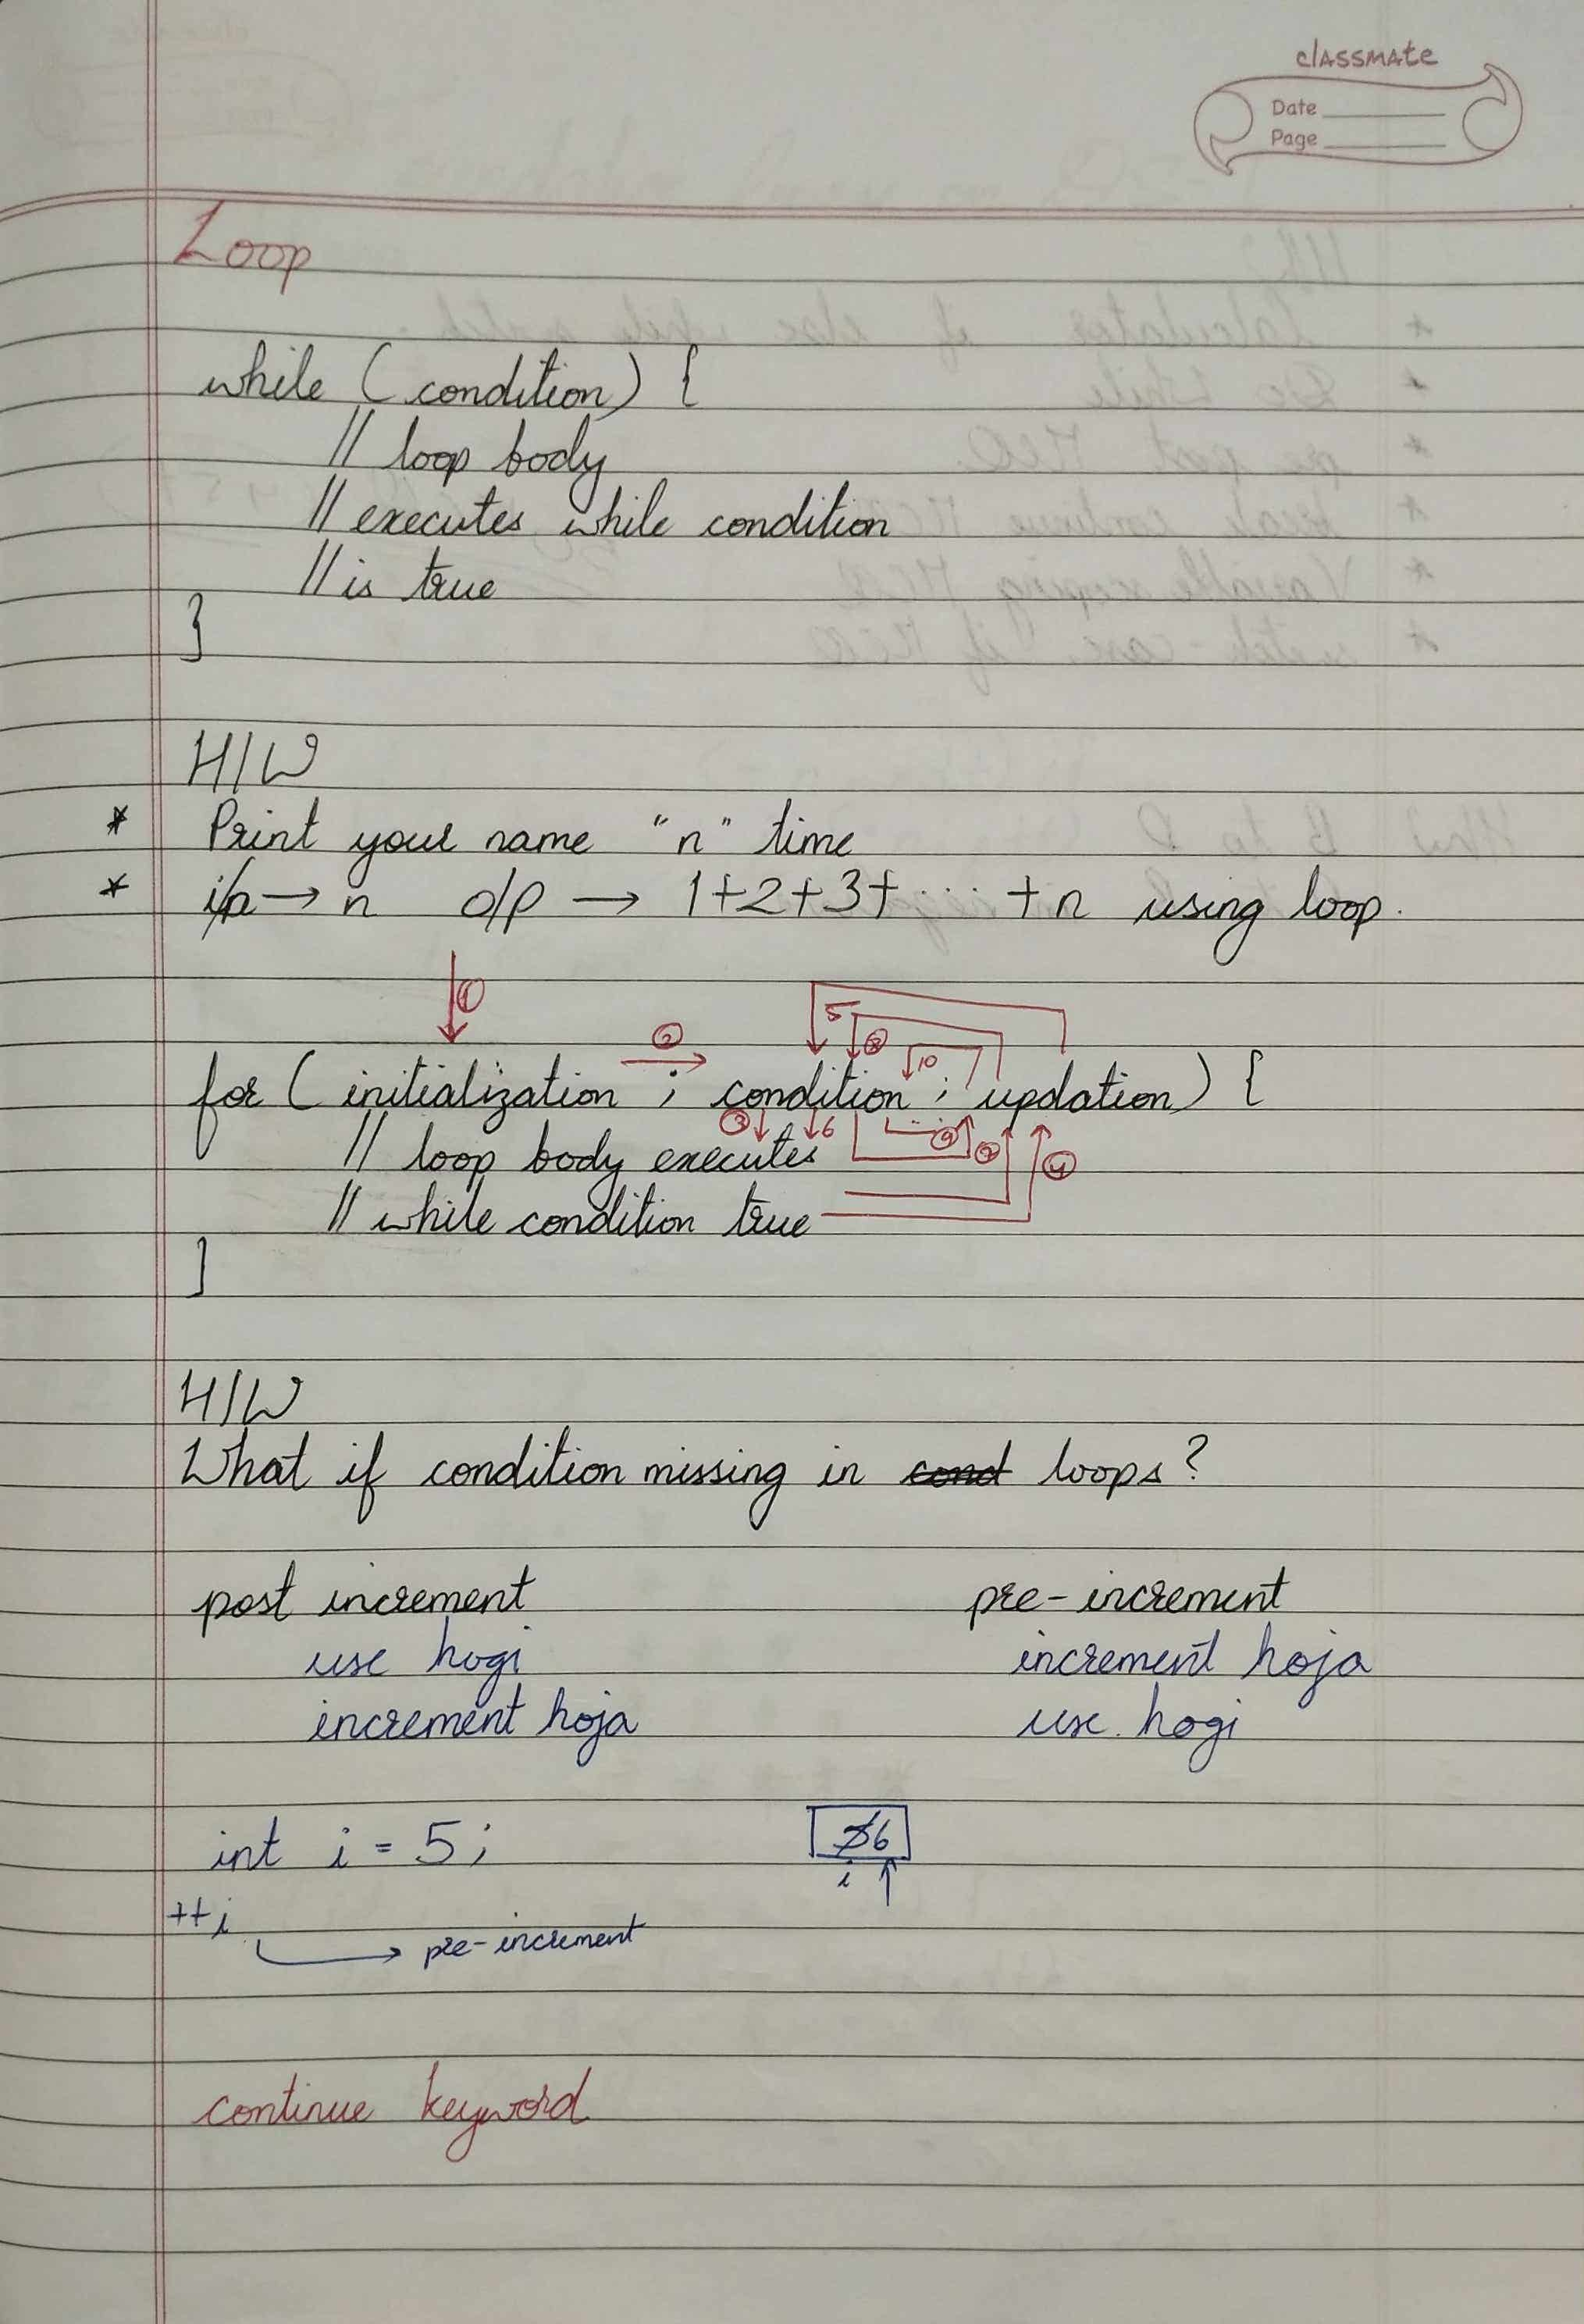 classmate
Date
Page
Loop
while (condition) {
// loop body
// executes while condition
// is true
}
H/W
* Print your name "n" time
* i/p → n o/p → 1+2+3+ ..... + n using loop.
① ② 5 ⑧ 10
for ( initialization ; condition ; updation) {
③ 6 ⑨ ⑦ ④
// loop body executes
// while condition true
}
H/W
What if condition missing in cond loops?
post increment pre-increment
use hogi increment hoja
increment hoja use hogi
int i = 5; 5 6
i
++i
→ pre-increment
continue keyword